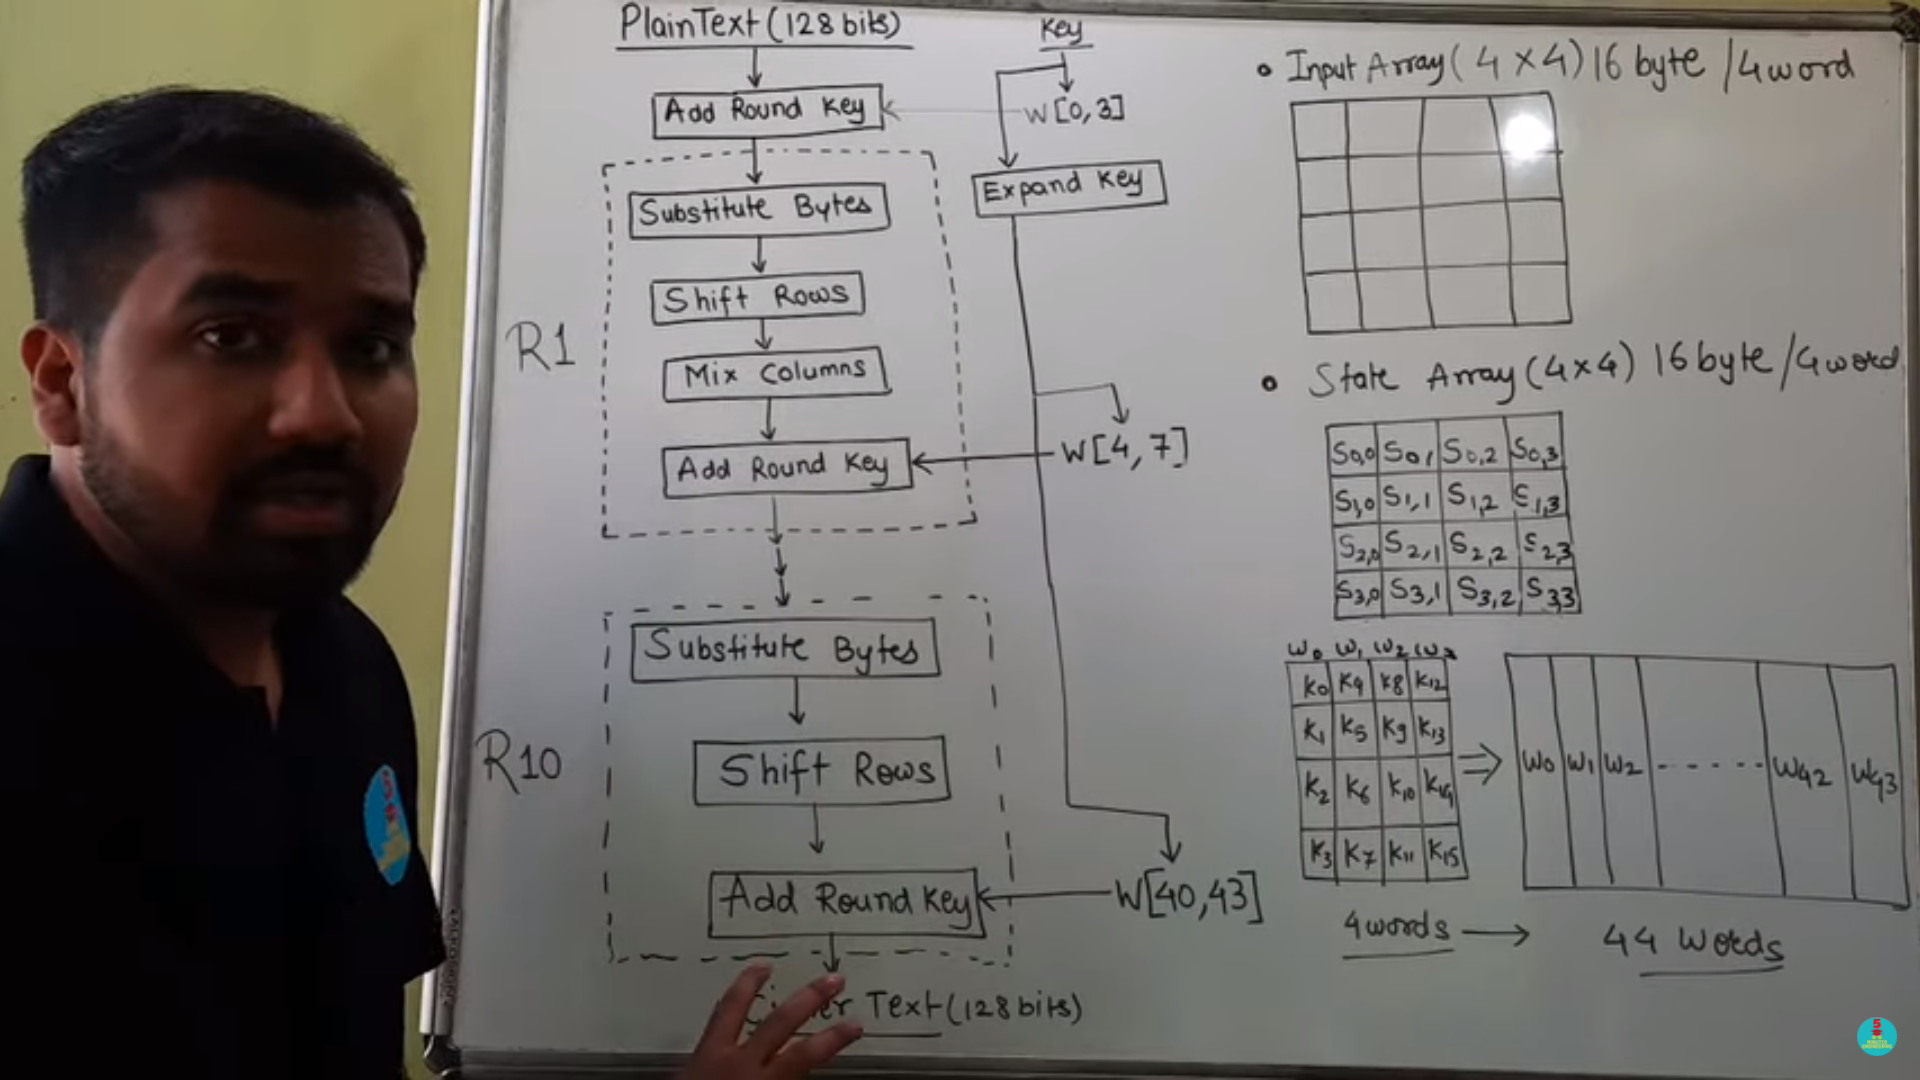 PlainText (128 bits)
Add Round Key
Substitute Bytes
Shift Rows
Mix Columns
Add Round Key
R1
Substitute Bytes
Shift Rows
Add Round Key
R10
Text (128 bits)
Key
W[0,3]
Expand Key
W[4,7]
W[40,43]
• Input Array (4 × 4) 16 byte / 4 word
• State Array (4×4) 16 byte / 4 word
S0,0 S0,1 S0,2 S0,3
S1,0 S1,1 S1,2 S1,3
S2,0 S2,1 S2,2 S2,3
S3,0 S3,1 S3,2 S3,3
W0 W1 W2 W3
K0 K4 K8 K12
K1 K5 K9 K13
K2 K6 K10 K14
K3 K7 K11 K15
⇒
W0 W1 W2 ------ W42 W43
4 words → 44 Words